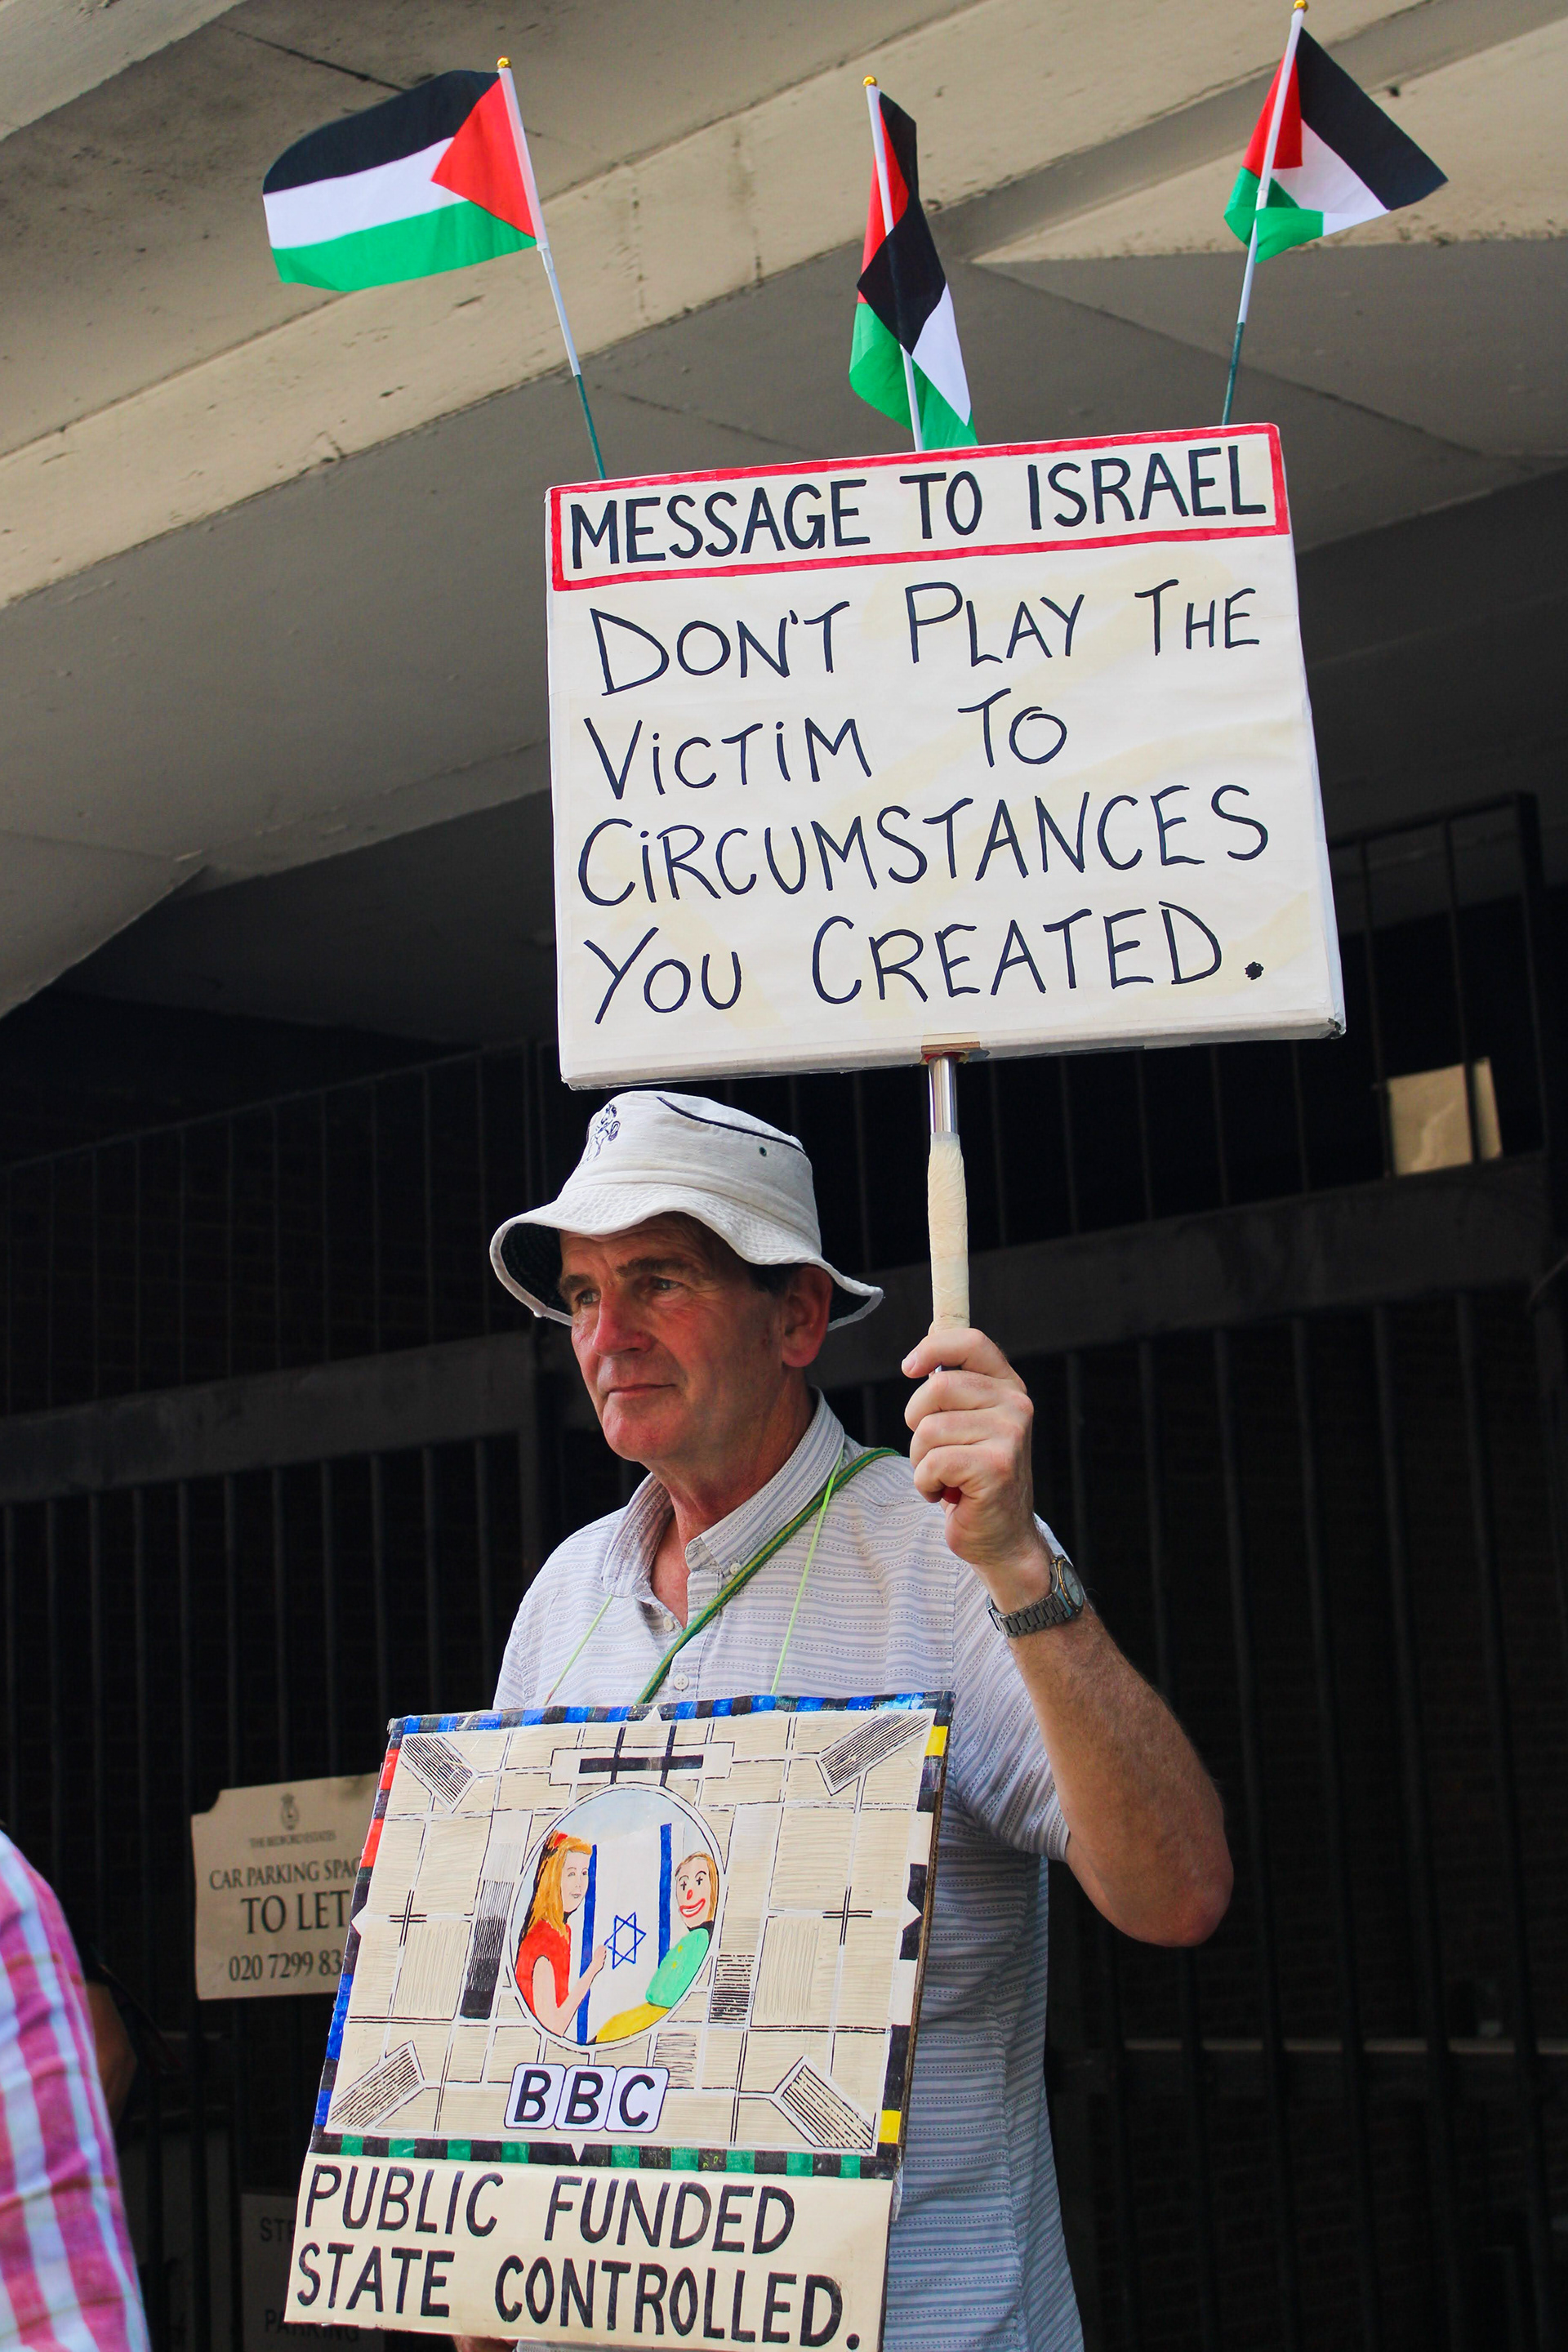 MESSAGE TO ISRAEL
DON'T PLAY THE
VICTIM TO
CIRCUMSTANCES
YOU CREATED.
THE BEDFORD ESTATES
CAR PARKING
TO LET
020 7299
BBC
PUBLIC FUNDED
STATE CONTROLLED.
PARKING